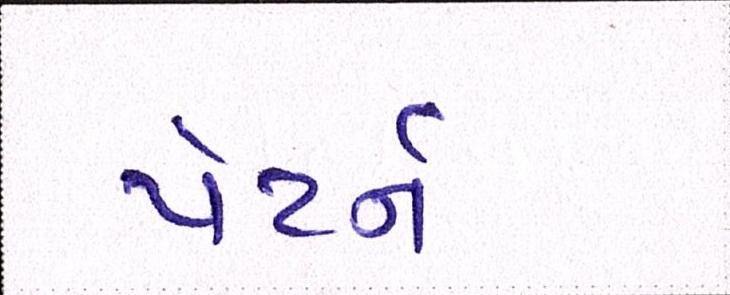 પેટર્ન